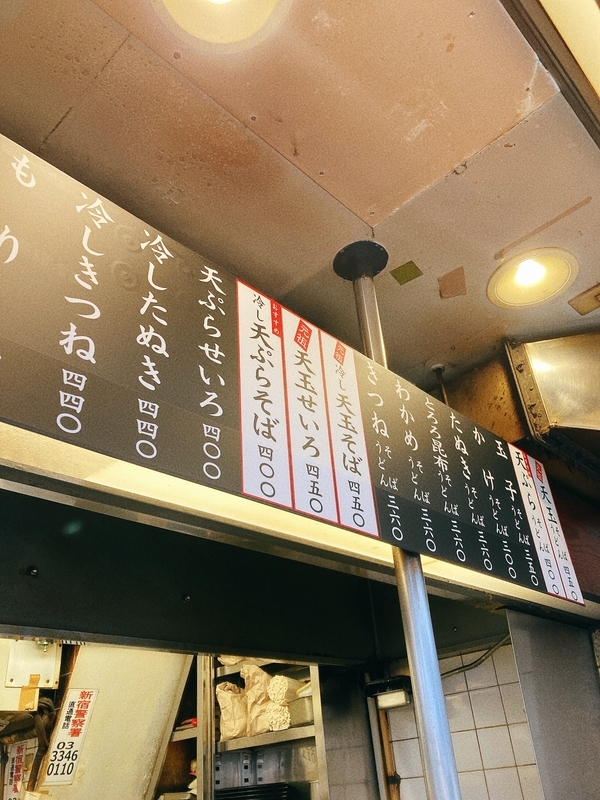 天玉 そば うどん 四五〇
天ぷら そば うどん 四〇〇
玉子 そば うどん 三五〇
かけ そば うどん 三〇〇
たぬき そば うどん 三六〇
とろろ昆布 そば うどん 三六〇
わかめ そば うどん 三六〇
きつね そば うどん 三六〇
元祖 冷し天玉そば 四五〇
元祖 天玉せいろ 四五〇
おすすめ 冷し天ぷらそば 四〇〇
天ぷらせいろ 四〇〇
冷したぬき 四四〇
冷しきつね 四四〇
もり
新宿警察署
直通電話
03
3346
0110